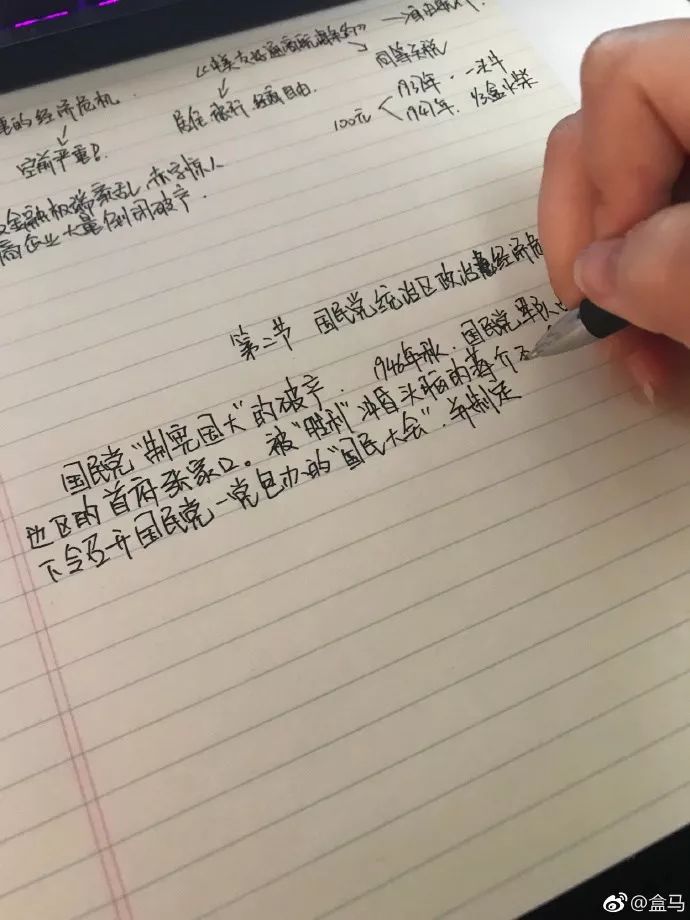 →自由
《中美友好通商航海条约》
的经济危机
居住 旅行 经商自由
同等关税
100元
1937年. 一头牛
1947年. 1/3盒火柴
空前严重!
金融极端紊乱,赤字惊人
商企业大量倒闭破产.
第二节 国民党统治区政治经济危
国民党“制宪国大”的破产. 1946年秋.国民党军队
边区的首府张家口。被“胜利”冲昏头脑的蒋介
下令召开国民党一党包办的“国民大会”.并制定
@盒马